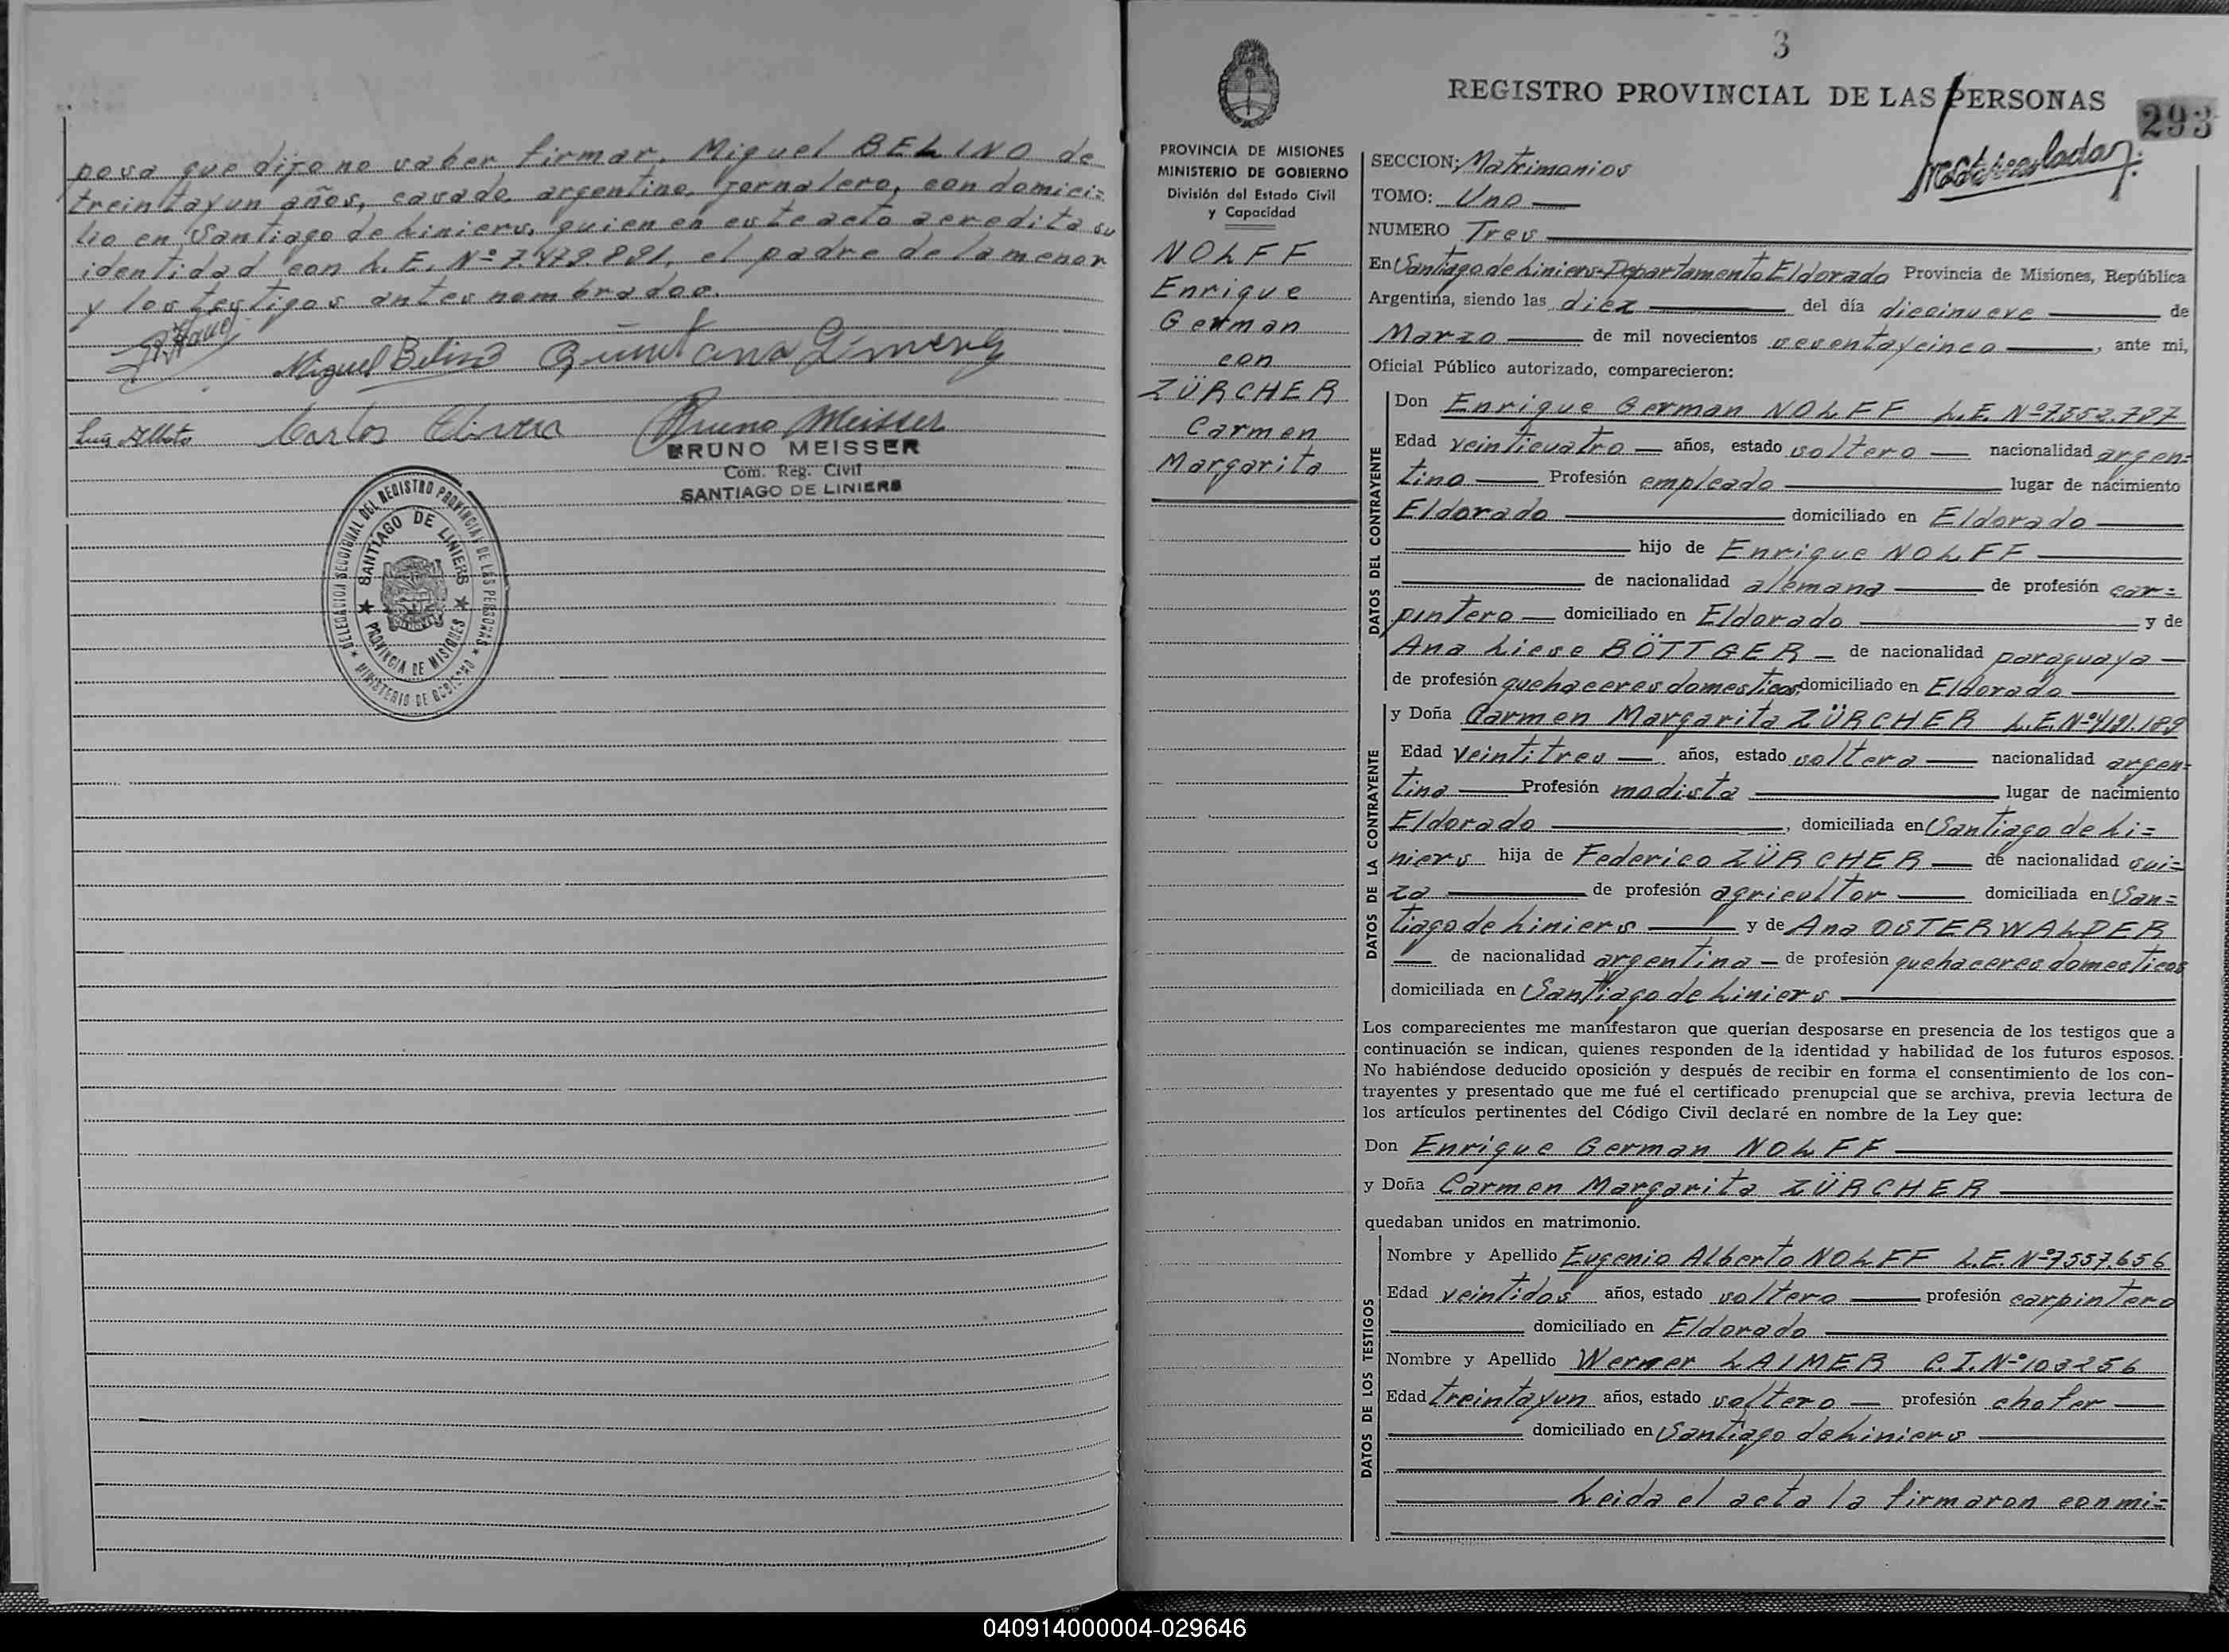 posa que dijo no saber firmar, Miguel BELINO de
treintayun años, casado, argentino, jornalero, con domici=
lio en Santiago de Liniers, quien en este acto acredita su
identidad con L. E. Nº 7.479.891, el padre de la menor
y los testigos antes nombrados.
Miguel Belino Quintana Gimenez
Luis Alberto Carlos Olivera Bruno Meisser
BRUNO MEISSER
Com. Reg. Civil
SANTIAGO DE LINIERS
DELEGACION SECCIONAL DEL REGISTRO PROVINCIAL DE LAS PERSONAS
SANTIAGO DE LINIERS
PROVINCIA DE MISIONES
MINISTERIO DE GOBIERNO
3
REGISTRO PROVINCIAL DE LAS PERSONAS
293
PROVINCIA DE MISIONES
MINISTERIO DE GOBIERNO
División del Estado Civil
y Capacidad
NOLFF
Enrique
German
con
ZÜRCHER
Carmen
Margarita
SECCION: Matrimonios
TOMO: Uno
NUMERO Tres
En Santiago de Liniers-Departamento Eldorado Provincia de Misiones, República
Argentina, siendo las diez del día diecinueve de
Marzo de mil novecientos setentaycinco, ante mi,
Oficial Público autorizado, comparecieron:
DATOS DEL CONTRAYENTE
Don Enrique German NOLFF L.E. Nº 7.552.787
Edad veinticuatro años, estado soltero nacionalidad argen=
tino Profesión empleado lugar de nacimiento
Eldorado domiciliado en Eldorado
hijo de Enrique NOLFF
de nacionalidad alemana de profesión car=
pintero domiciliado en Eldorado y de
Ana Liese BÖTTGER de nacionalidad paraguaya
de profesión quehaceres domesticos, domiciliado en Eldorado
DATOS DE LA CONTRAYENTE
y Doña Carmen Margarita ZÜRCHER L.E.Nº
Edad veintitres años, estado soltera nacionalidad argen=
tina Profesión modista lugar de nacimiento
Eldorado, domiciliada en Santiago de Li=
niers hija de Federico ZÜRCHER de nacionalidad sui=
za de profesión agricultor domiciliada en San=
tiago de Liniers y de Ana OSTERWALDER
de nacionalidad argentina de profesión quehaceres domesticos
domiciliada en Santiago de Liniers
Los comparecientes me manifestaron que querían desposarse en presencia de los testigos que a
continuación se indican, quienes responden de la identidad y habilidad de los futuros esposos.
No habiéndose deducido oposición y después de recibir en forma el consentimiento de los con-
trayentes y presentado que me fué el certificado prenupcial que se archiva, previa lectura de
los artículos pertinentes del Código Civil declaré en nombre de la Ley que:
Don Enrique German NOLFF
y Doña Carmen Margarita ZÜRCHER
quedaban unidos en matrimonio.
DATOS DE LOS TESTIGOS
Nombre y Apellido Eugenio Alberto NOLFF L.E. Nº 7.557.656
Edad veintidos años, estado soltero profesión carpintero
domiciliado en Eldorado
Nombre y Apellido Werner LAIMER C.I. Nº 103256
Edad treintayun años, estado soltero profesión chofer
domiciliado en Santiago de Liniers
Leida el acta la firmaron conmi=
040914000004-029646